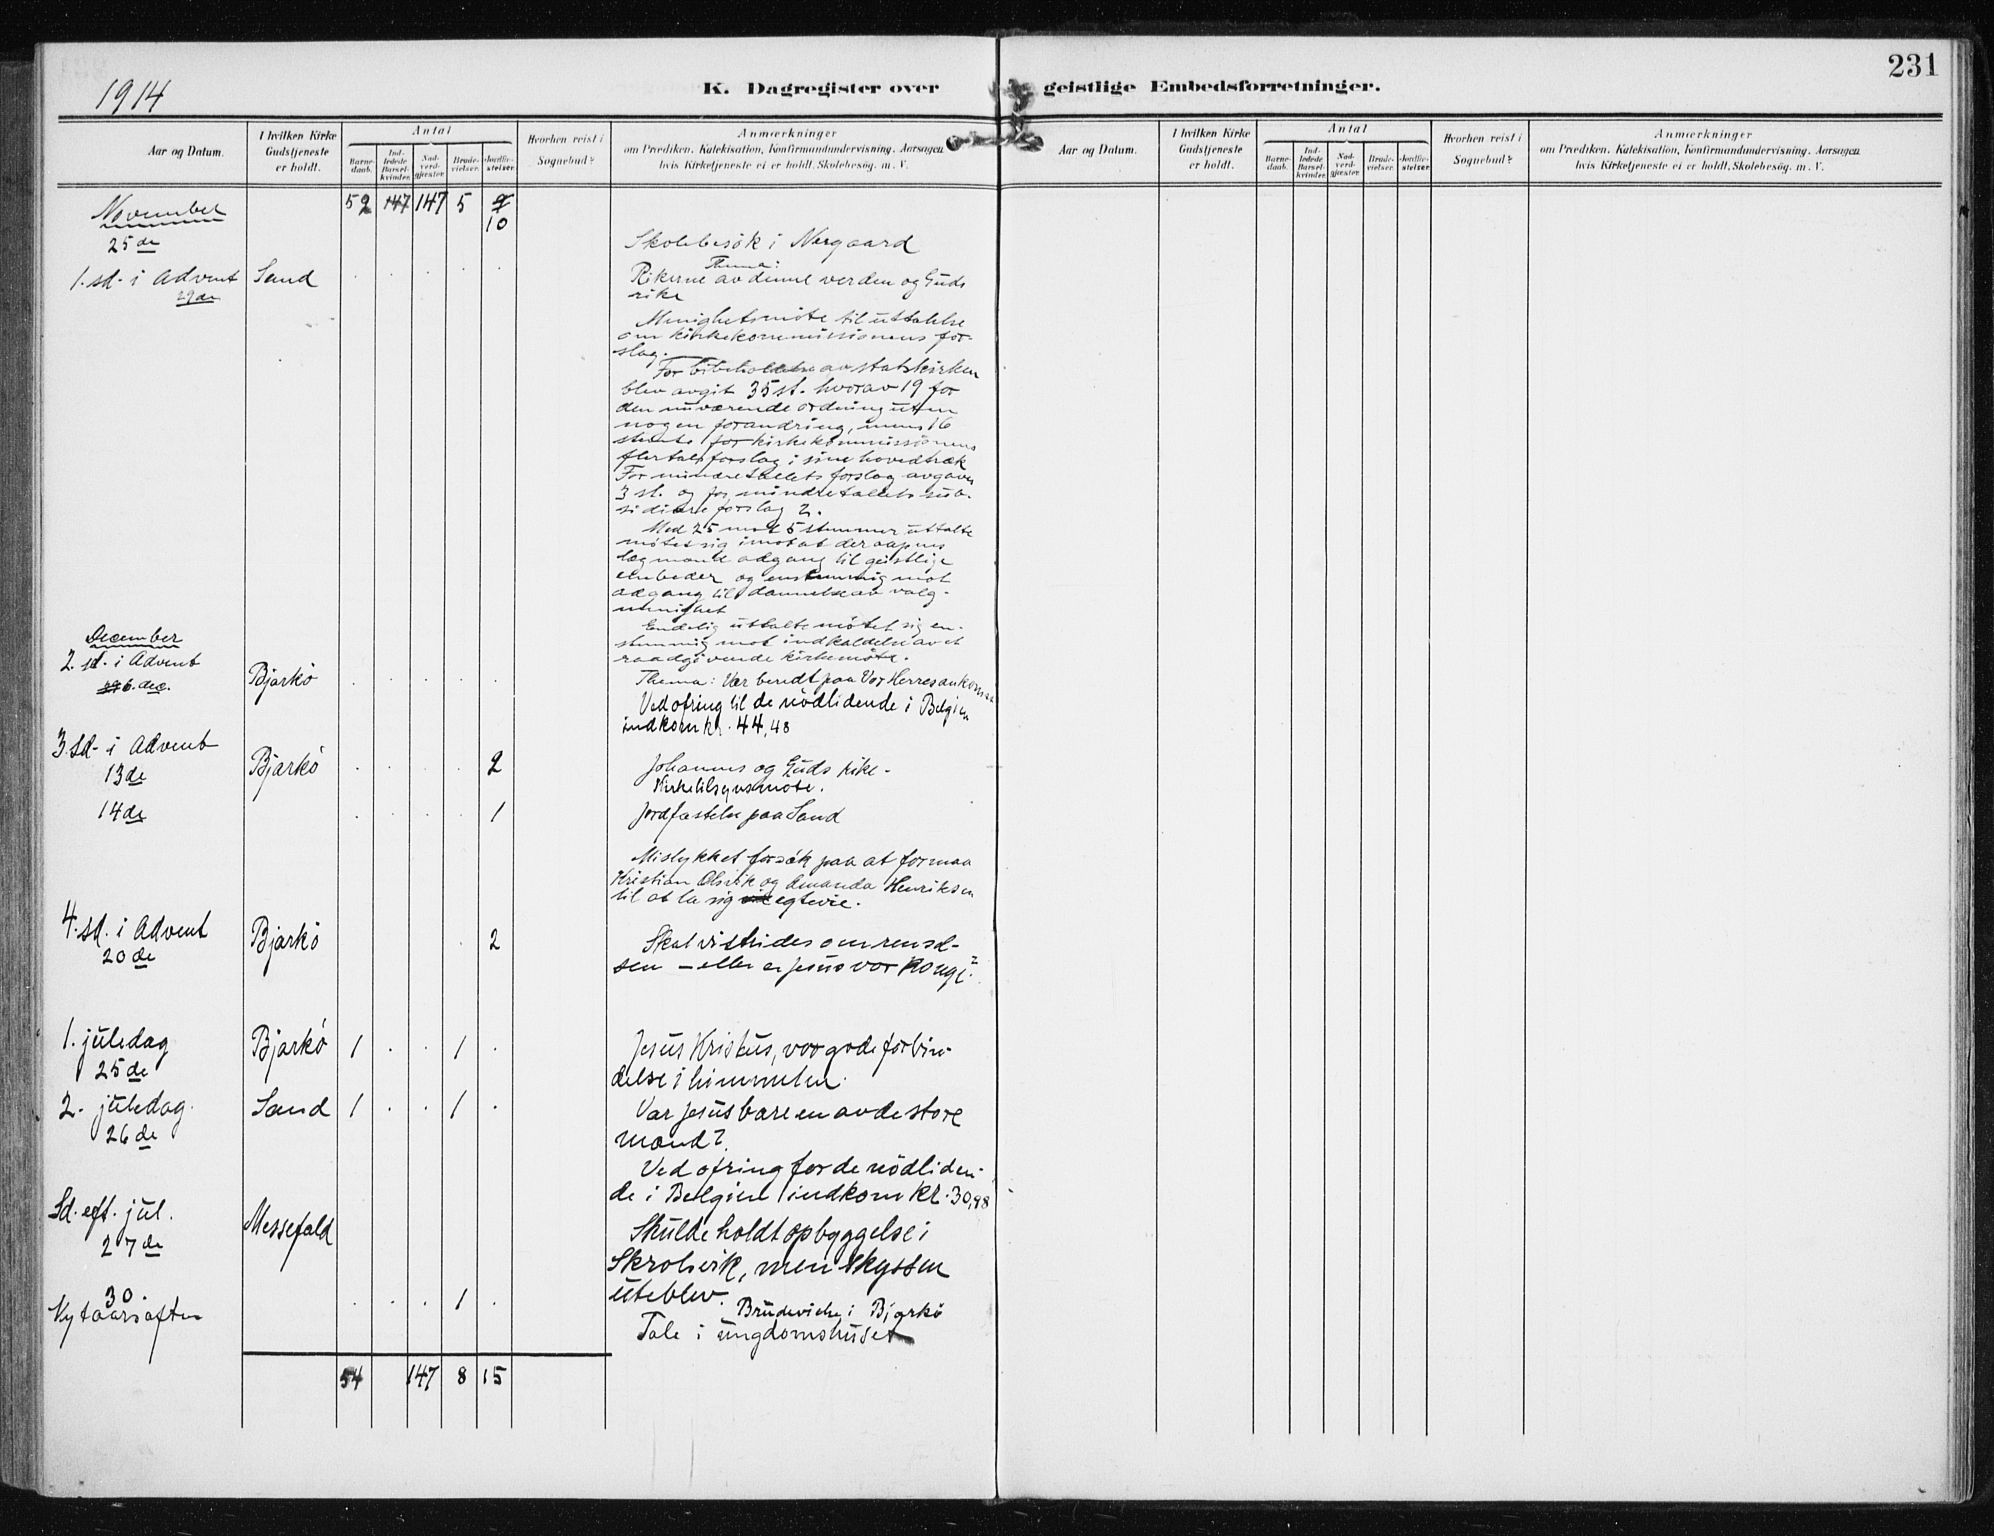 1914
K. Dagregister over geistlige Embedsforretninger.
231
Aar og Datum.
I hvilken Kirke Gudstjeneste er holdt.
Antal
Barne-daab.
Ind-ledede Barsel-kvinder.
Nad-verd-gjæster.
Brude-vielser.
Jordfæ-stelser.
Hvorhen reist i Sognebud?
Anmærkninger
om Prædiken, Katekisation, Konfirmandundervisning, Aarsagen
hvis Kirketjeneste ei er holdt, Skolebesög, m. V.
Aar og Datum.
I hvilken Kirke Gudstjeneste er holdt.
Antal
Barne-daab.
Ind-ledede Barsel-kvinder.
Nad-verd-gjæster.
Brude-vielser.
Jordfæ-stelser.
Hvorhen reist i Sognebud?
Anmærkninger
om Prædiken, Katekisation, Konfirmandundervisning, Aarsagen
hvis Kirketjeneste ei er holdt, Skolebesög, m. V.
November 52 147 147 5 9
10
25de Skolebesök i Nergaard
Thema:
1. sd. i Advent Sand Rikerne av denne verden og Guds
29de rike
Menighetsmöte til uttalelse
om kirkekommissionens for-
slag.
For bibeholdelse av statskirken
blev avgit 35 st. hvorav 19 for
den nuværende ordning uten
nogen forandring, mens 16
stemte for kirkekommissionens
flertalsforslag i sine hovedtræk
For mindretallets forslag avgaves
3 st. og for mindretallets sub-
sidiære forslag 2.
Med 25 mot 5 stemmer uttalte
møtet sig imot at der aapnes
lægmænd adgang til geistlige
embeder og enstemmig mot
adgang til dannelse av valg-
menighet
Endelig uttalte møtet sig en-
stemmig mot indkaldelse av et
raadgivende kirkemöte.
December
2. sd. i Advent
6. dec. Bjarkö Thema: Vær beredt paa Vor Herres ankomst
Ved ofring til de nödlidende i Belgien
indkom kr. 44,48
3. sd. i Advent
13de Bjarkö 2 Johannes og Guds rike.
Kirketilsynsmöte.
14de 1 Jordfæstelse paa Sand
Mislykket forsök paa at formaa
Kristian Olsvik og Amanda Henriksen
til at la sig egtevie.
4. sd. i Advent Bjarkö 2 Skal vi strides om rensel-
20de sen – eller er Jesus vor Konge?
1. juledag Bjarkö 1 1 Jesus Kristus, vor gode forbin-
25de delse i himmelen.
2. juledag. Sand 1 1 Var Jesus bare en av de store
26de mænd?
Ved ofring for de nödliden-
de i Belgien indkom kr. 30,98
Sd. eft. jul. Messefald Skulde holdt opbyggelse i
27de Skrolsvik, men skyssen
uteblev.
30. 1 Brudevielse i Bjarkö
Nytaarsaften Tale i ungdomshuset
54 147 8 15